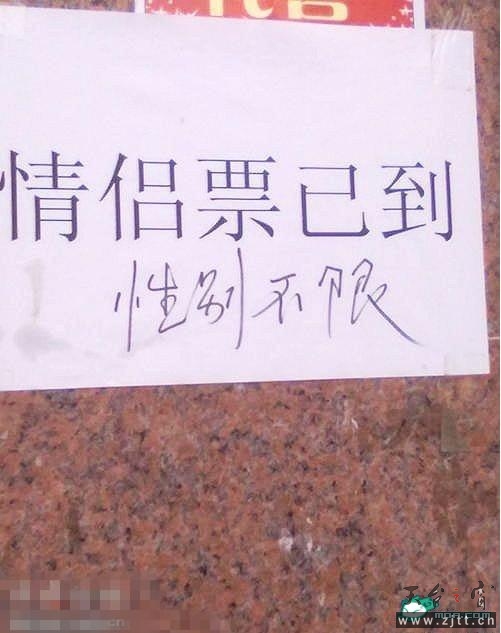 情侣票已到
性别不限
www.zjtt.cn